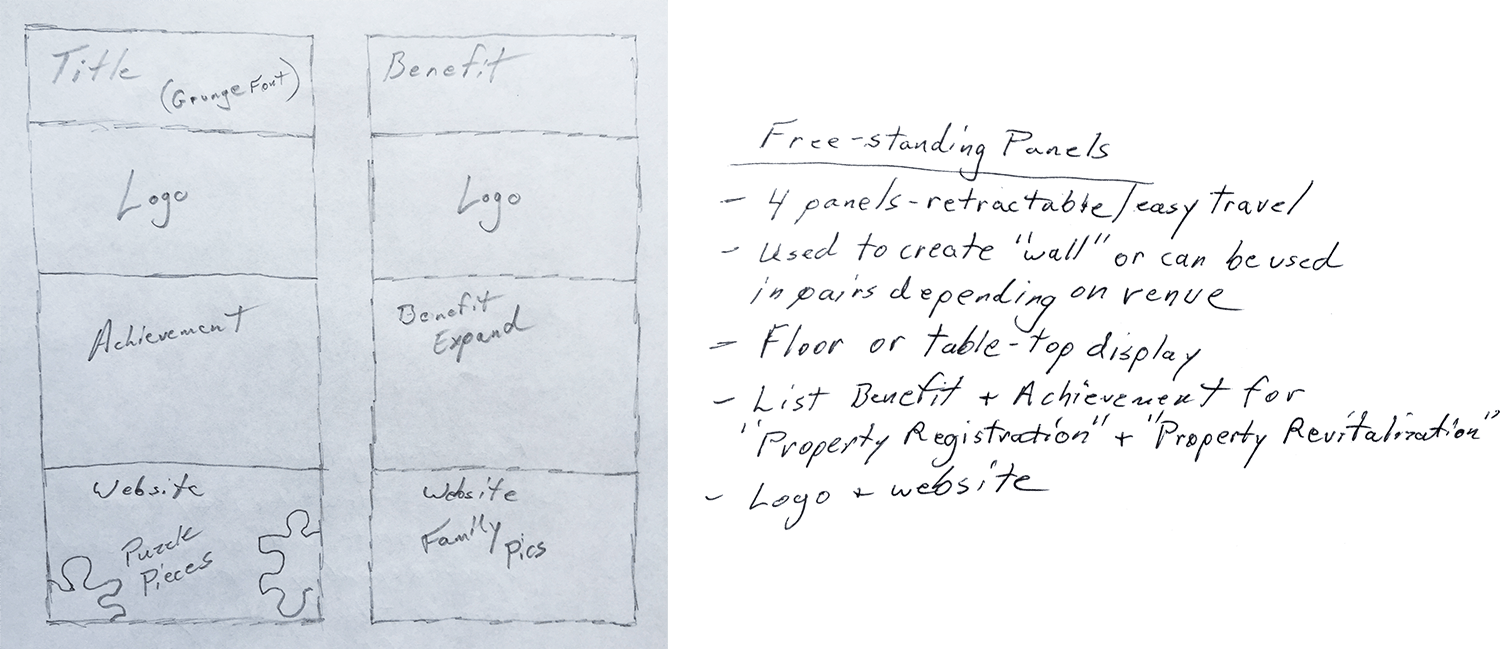 Title
(Grunge Font)
Logo
Achievement
Website
Puzzle
Pieces
Benefit
Logo
Benefit
Expand
Website
Family Pics
Free-standing Panels
- 4 panels-retractable/easy travel
- Used to create "wall" or can be used
in pairs depending on venue
- Floor or table-top display
- List Benefit + Achievement for
"Property Registration" + "Property Revitalization"
- Logo + website